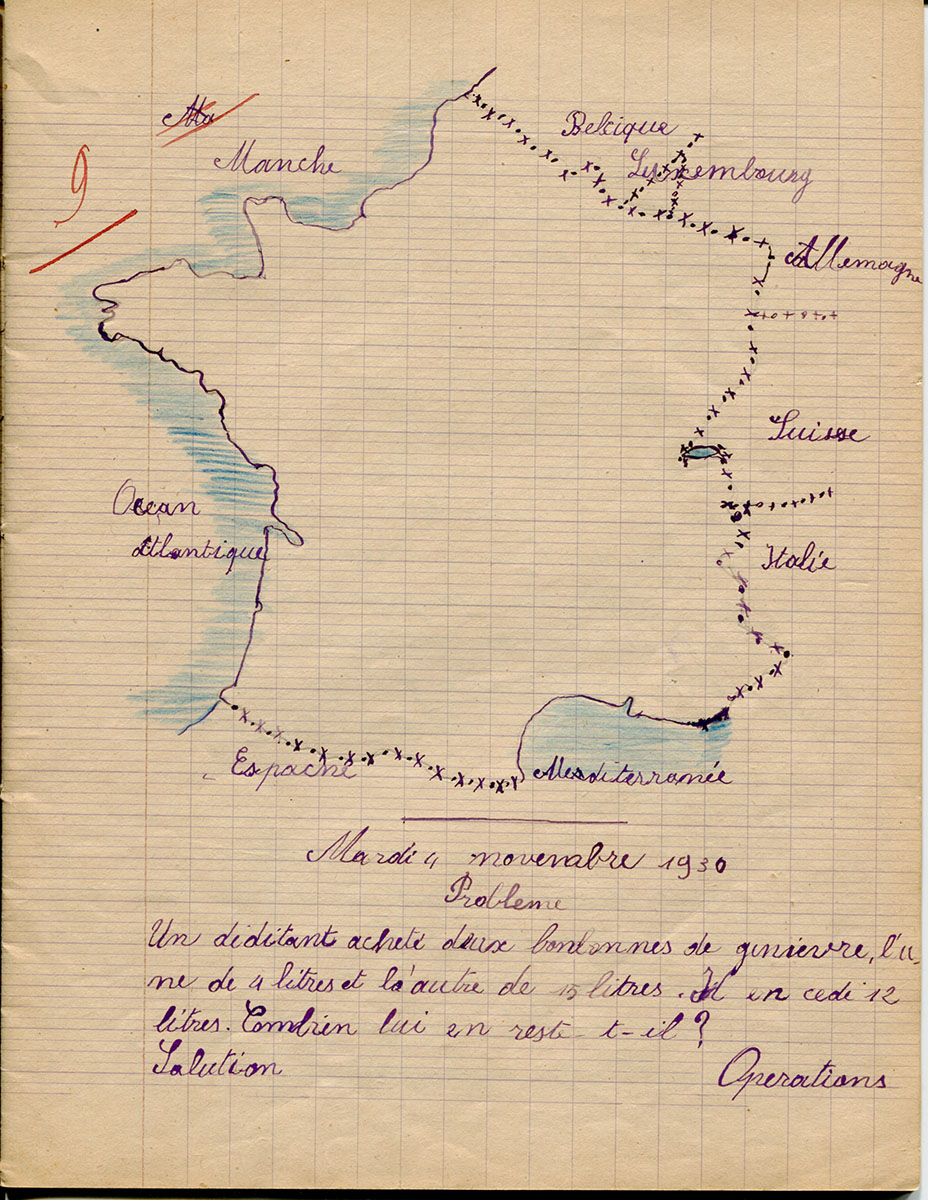 Ma
9
Manche
Belcique
Luxembourg
Allemagne
Suisse
Ocean
Atlantique
Italie
Espacne
Mesditerranée
Mardi 4 novembre 1930
Probleme
Un diditant acheté deux bonbonnes de genievre, l'u-
ne de 4 litres et la'autre de 15 litres. Il en cedi 12
litres. Combien lui en reste-t-il?
Solution
Operations